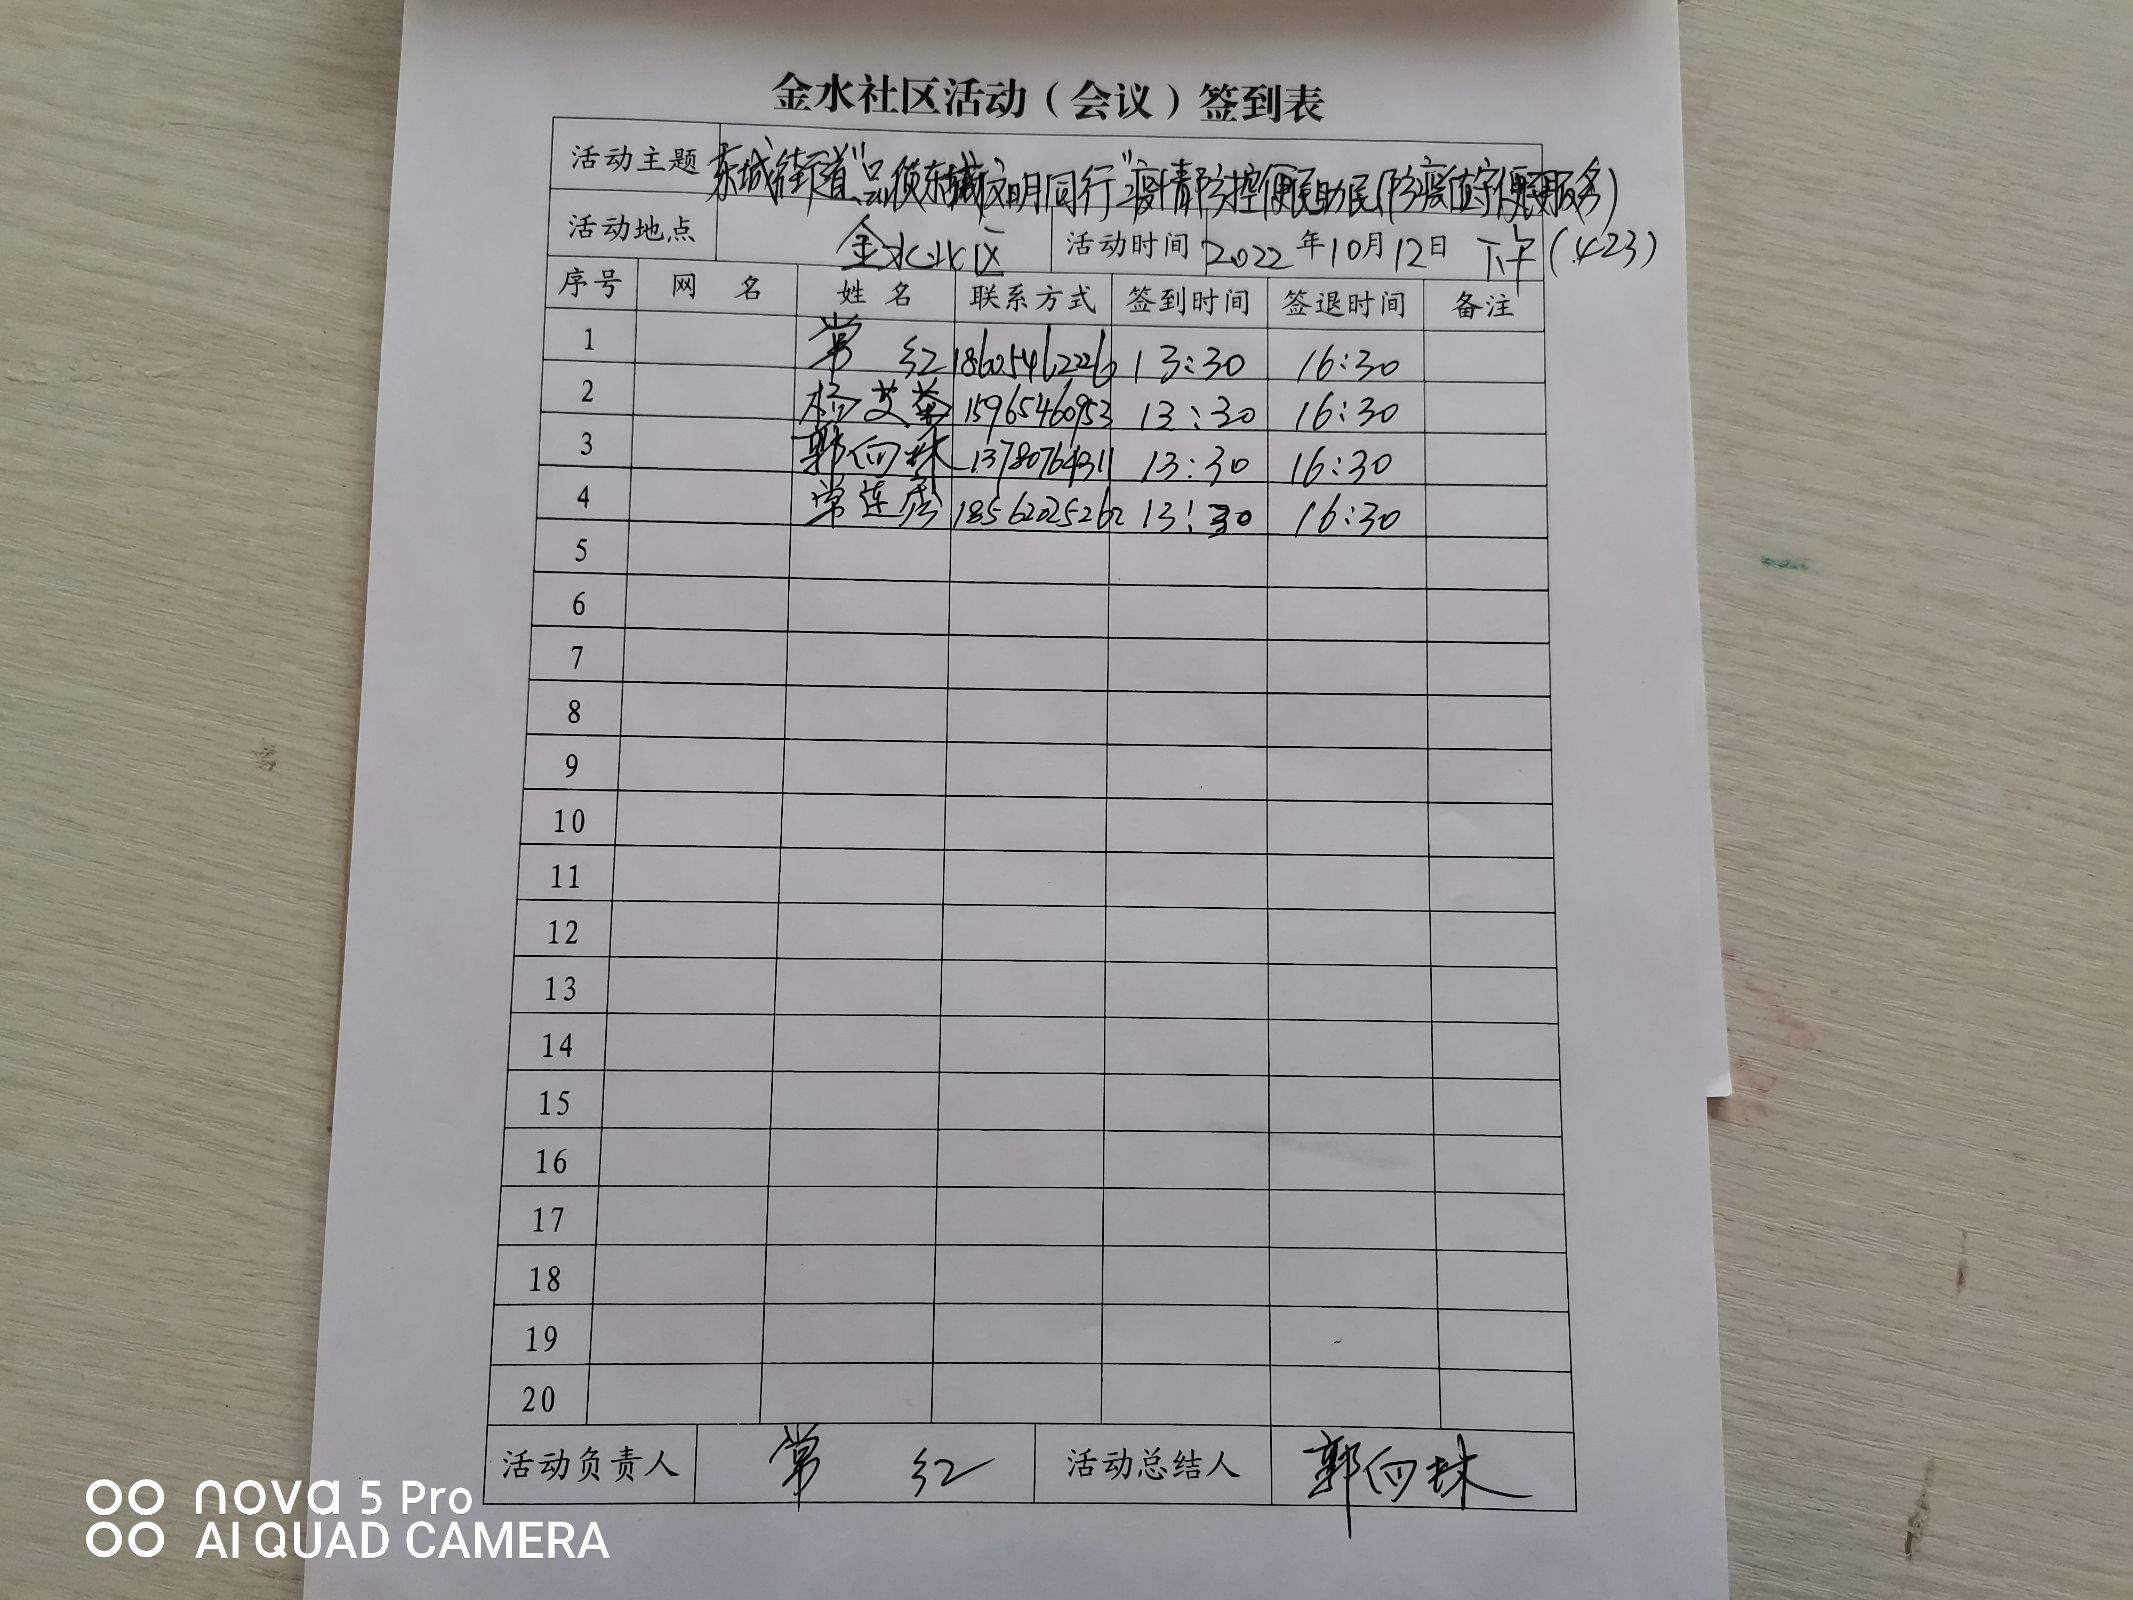 金水社区活动（会议）签到表
活动主题 东城街道"品质东城文明同行"疫情防控便民助民(防疫值守便民服务)
活动地点 金水北区 活动时间 2022年10月12日 下午(423)
序号 网 名 姓 名 联系方式 签到时间 签退时间 备注
1 常 红 18605462226 13:30 16:30
2 杨艾 15965460953 13:30 16:30
3 郭向 13780764311 13:30 16:30
4 常连秀 18562025262 13:30 16:30
5
6
7
8
9
10
11
12
13
14
15
16
17
18
19
20
活动负责人 常 红 活动总结人 郭向
nova 5 Pro
AI QUAD CAMERA